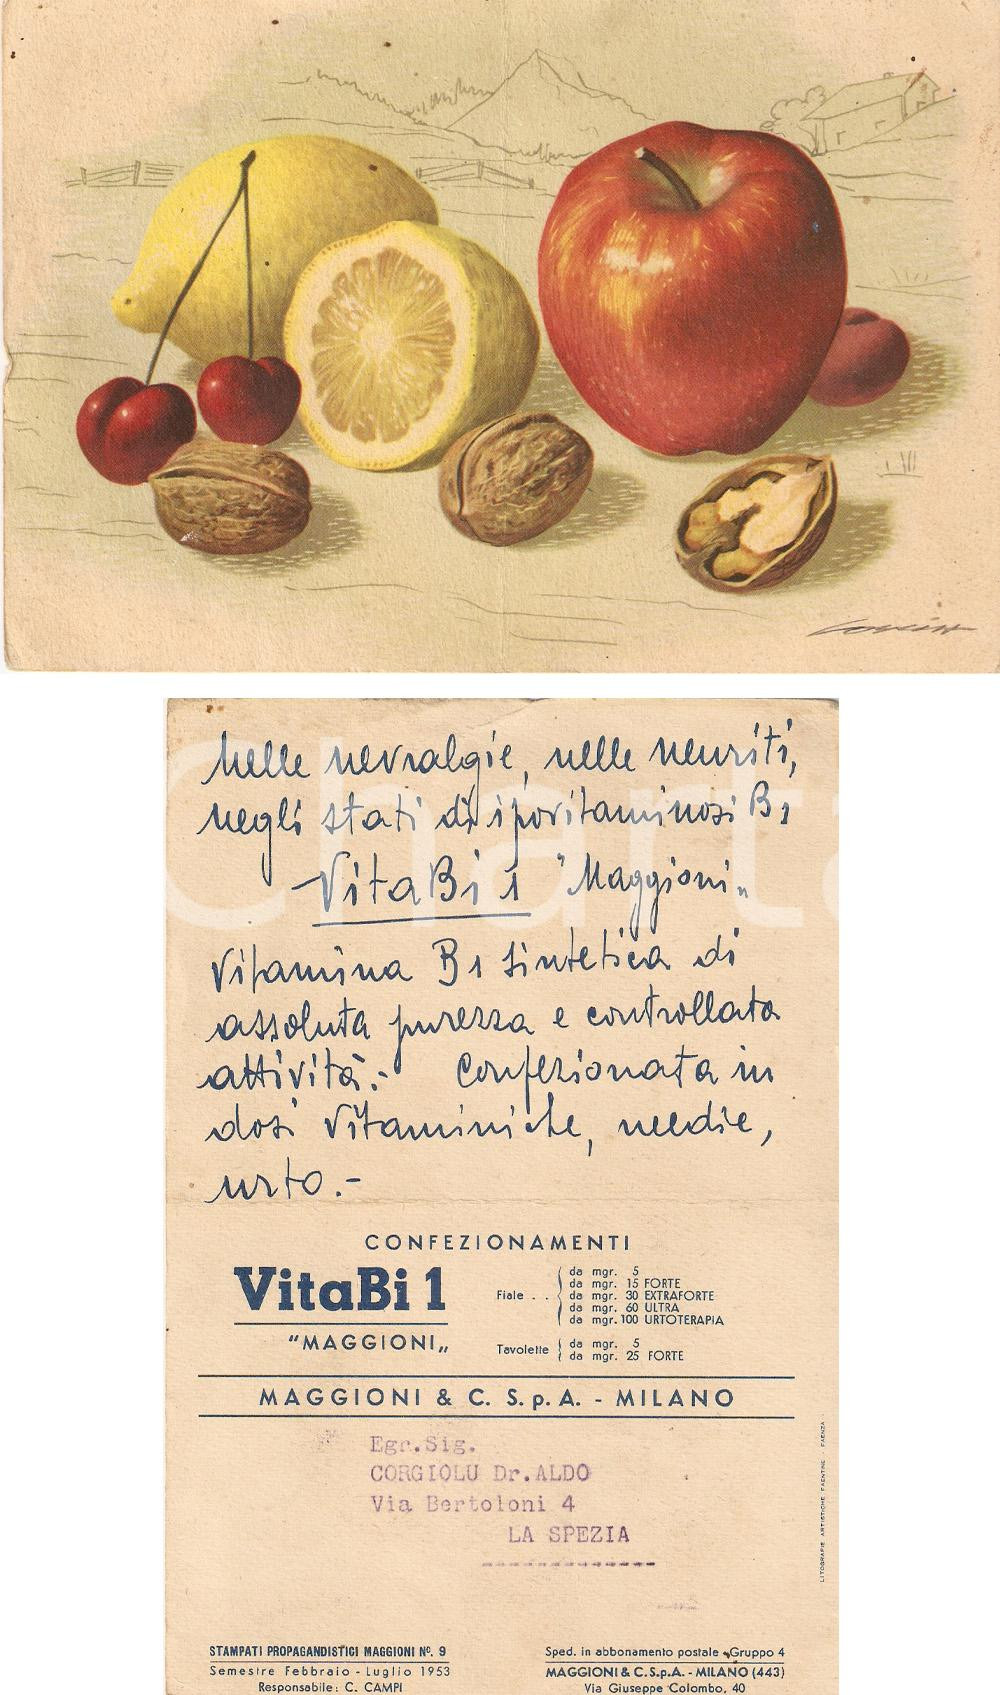 Nelle nevralgie, nelle neuriti,
negli stati di ipovitaminosi B1
VitaBi 1 "Maggioni„
Vitamina B1 sintetica di
assoluta purezza e controllata
attività.- Confezionata in
dosi vitaminiche, medie,
urto.-
CONFEZIONAMENTI
VitaBi 1
"MAGGIONI„
Fiale . .
da mgr. 5
da mgr. 15 FORTE
da mgr. 30 EXTRAFORTE
da mgr. 60 ULTRA
da mgr. 100 URTOTERAPIA
Tavolette
da mgr. 5
da mgr. 25 FORTE
MAGGIONI & C. S.p.A. - MILANO
Egr.Sig.
CORGIOLU Dr.ALDO
Via Bertoloni 4
LA SPEZIA
LITOGRAFIE ARTISTICHE FAENTINE - FAENZA
STAMPATI PROPAGANDISTICI MAGGIONI N°. 9
Semestre Febbraio - Luglio 1953
Responsabile: C. CAMPI
Sped. in abbonamento postale - Gruppo 4
MAGGIONI & C.S.p.A. - MILANO (443)
Via Giuseppe Colombo, 40
Charta